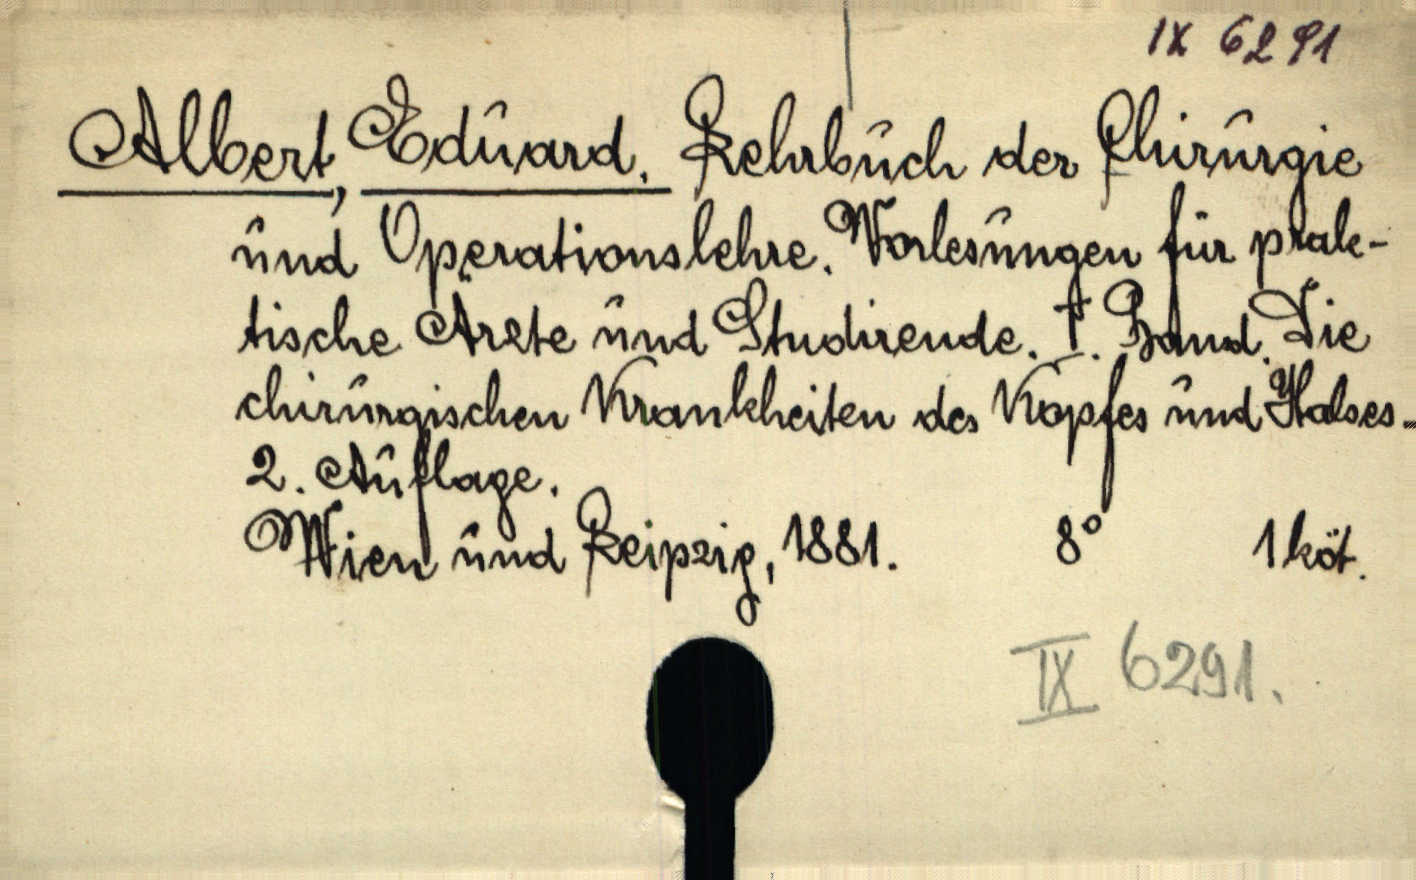 IX 6291
Albert, Eduard. Lehrbuch der Chirurgie
und Operationslehre. Vorlesungen für prak-
tische Ärzte und Studirende. I. Band. Die
chirurgischen Krankheiten des Kopfes und Halses.
2. Auflage.
Wien und Leipzig, 1881. 8° 1 köt.
IX 6291.